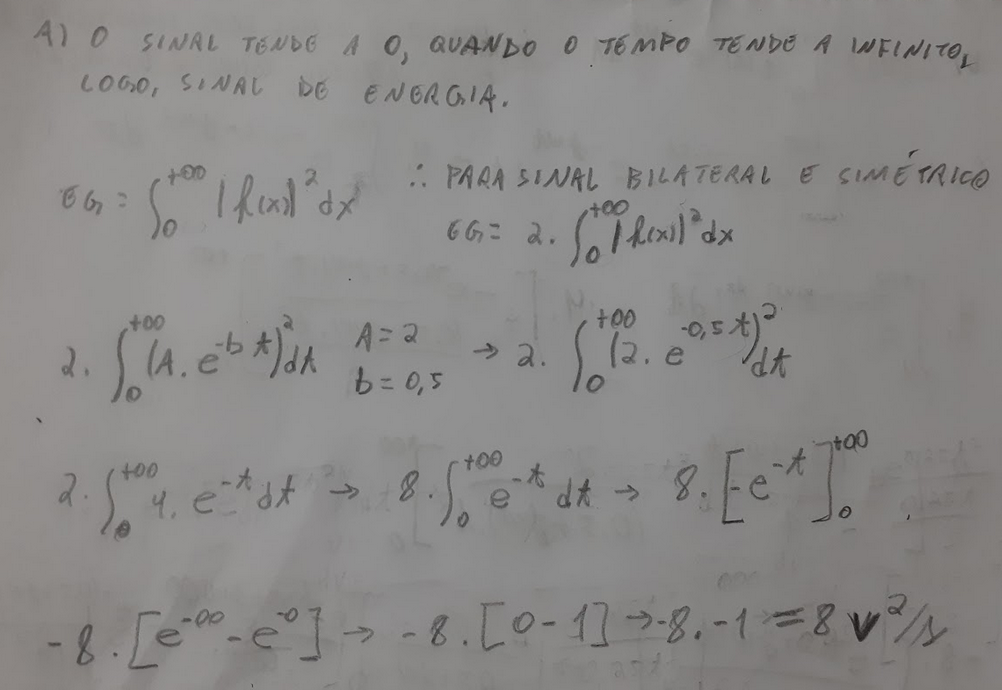 A) O SINAL TENDE A 0, QUANDO O TEMPO TENDE A INFINITO,
LOGO, SINAL DE ENERGIA.
EG = ∫₀^{+∞} |f(x)|² dx ∴ PARA SINAL BILATERAL E SIMÉTRICO
EG = 2. ∫₀^{+∞} |f(x)|² dx
2. ∫₀^{+∞} (A. e^{-b t})² dt A = 2 b = 0,5 → 2. ∫₀^{+∞} (2. e^{-0,5 t})² dt
2. ∫₀^{+∞} 4. e^{-t} dt → 8. ∫₀^{+∞} e^{-t} dt → 8. [-e^{-t}]₀^{+∞}
-8. [e^{-∞} - e^{-0}] → -8. [0 - 1] → -8. -1 = 8 V²/s